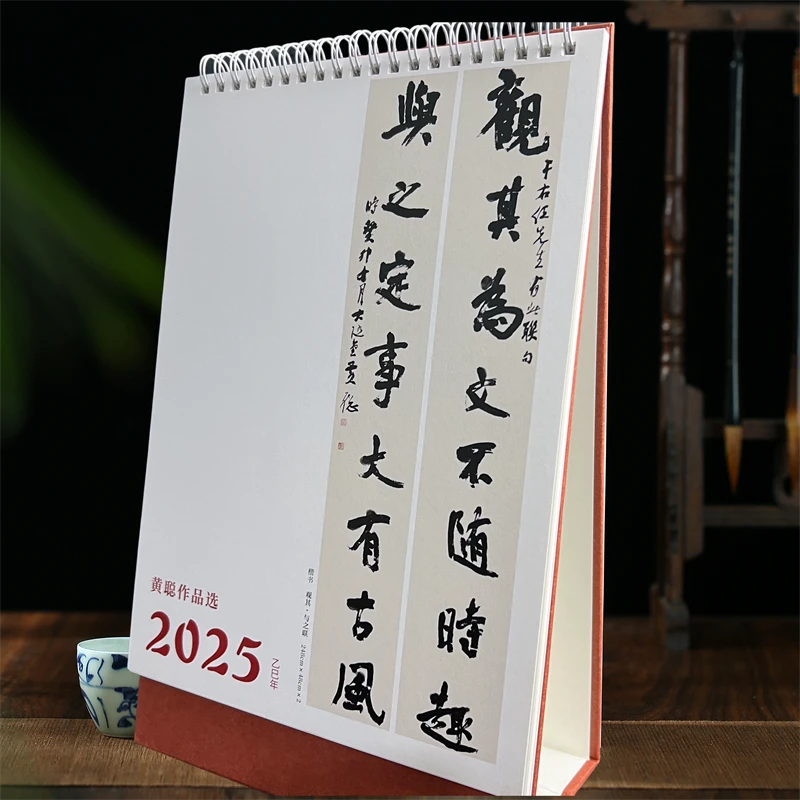 觀其為文不隨時趣
于右任先生有此聯句
與之定事大有古風
時癸卯
黄聪作品选
2025
乙巳年
楷书 观其·与之联 248cm×40cm×2